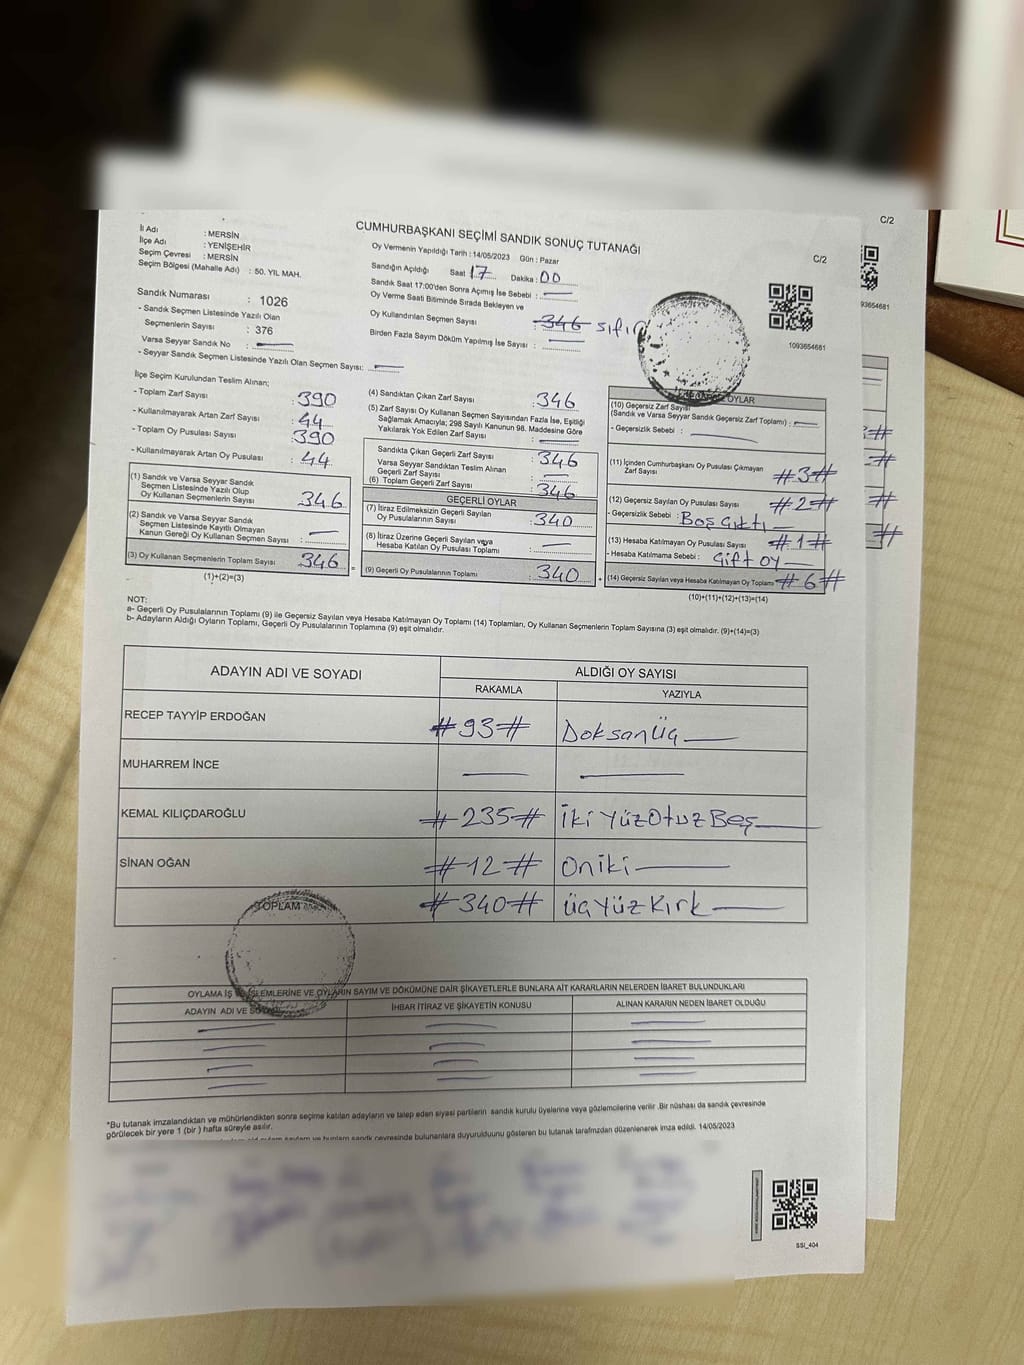 C/2
İl Adı : MERSİN
İlçe Adı : YENİŞEHİR
Seçim Çevresi : MERSİN
Seçim Bölgesi (Mahalle Adı) : 50. YIL MAH.
CUMHURBAŞKANI SEÇİMİ SANDIK SONUÇ TUTANAĞI
C/2
Oy Vermenin Yapıldığı Tarih : 14/05/2023 Gün : Pazar
Sandığın Açıldığı Saat 17 Dakika : 00
Sandık Saat 17:00'den Sonra Açımış İse Sebebi :
Oy Verme Saati Bitiminde Sırada Bekleyen ve
Oy Kullandırılan Seçmen Sayısı : 346 sıfır
Birden Fazla Sayım Döküm Yapılmış İse Sayısı :
1093654681
Sandık Numarası : 1026
- Sandık Seçmen Listesinde Yazılı Olan
Seçmenlerin Sayısı : 376
Varsa Seyyar Sandık No :
- Seyyar Sandık Seçmen Listesinde Yazılı Olan Seçmen Sayısı :
İlçe Seçim Kurulundan Teslim Alınan;
- Toplam Zarf Sayısı : 390
- Kullanılmayarak Artan Zarf Sayısı : 44
- Toplam Oy Pusulası Sayısı : 390
- Kullanılmayarak Artan Oy Pusulası : 44
(1) Sandık ve Varsa Seyyar Sandık
Seçmen Listesinde Yazılı Olup
Oy Kullanan Seçmenlerin Sayısı : 346
(2) Sandık ve Varsa Seyyar Sandık
Seçmen Listesinde Kayıtlı Olmayan
Kanun Gereği Oy Kullanan Seçmen Sayısı :
(3) Oy Kullanan Seçmenlerin Toplam Sayısı : 346
(1)+(2)=(3)
(4) Sandıktan Çıkan Zarf Sayısı : 346
(5) Zarf Sayısı Oy Kullanan Seçmen Sayısından Fazla İse, Eşitliği
Sağlamak Amacıyla; 298 Sayılı Kanunun 98. Maddesine Göre
Yakılarak Yok Edilen Zarf Sayısı :
Sandıkta Çıkan Geçerli Zarf Sayısı : 346
Varsa Seyyar Sandıktan Teslim Alınan
Geçerli Zarf Sayısı :
(6) Toplam Geçerli Zarf Sayısı : 346
GEÇERLİ OYLAR
(7) İtiraz Edilmeksizin Geçerli Sayılan
Oy Pusulalarının Sayısı : 340
(8) İtiraz Üzerine Geçerli Sayılan veya
Hesaba Katılan Oy Pusulası Toplamı :
(9) Geçerli Oy Pusulalarının Toplamı : 340
OYLAR
(10) Geçersiz Zarf Sayısı
(Sandık ve Varsa Seyyar Sandık Geçersiz Zarf Toplamı) :
- Geçersizlik Sebebi :
(11) İçinden Cumhurbaşkanı Oy Pusulası Çıkmayan
Zarf Sayısı #3#
(12) Geçersiz Sayılan Oy Pusulası Sayısı : #2#
- Geçersizlik Sebebi : Boş Çıktı
(13) Hesaba Katılmayan Oy Pusulası Sayısı : #1#
- Hesaba Katılmama Sebebi : Çift oy
(14) Geçersiz Sayılan veya Hesaba Katılmayan Oy Toplamı : #6#
(10)+(11)+(12)+(13)=(14)
NOT:
a- Geçerli Oy Pusulalarının Toplamı (9) ile Geçersiz Sayılan veya Hesaba Katılmayan Oy Toplamı (14) Toplamları, Oy Kullanan Seçmenlerin Toplam Sayısına (3) eşit olmalıdır. (9)+(14)=(3)
b- Adayların Aldığı Oyların Toplamı, Geçerli Oy Pusulalarının Toplamına (9) eşit olmalıdır.
ADAYIN ADI VE SOYADI ALDIĞI OY SAYISI
RAKAMLA YAZIYLA
RECEP TAYYİP ERDOĞAN #93# Doksan Üç
MUHARREM İNCE
KEMAL KILIÇDAROĞLU #235# İki Yüz Otuz Beş
SİNAN OĞAN #12# Oniki
TOPLAM #340# üç Yüz Kırk
OYLAMA İŞ İŞLEMLERİNE VE OYLARIN SAYIM VE DÖKÜMÜNE DAİR ŞİKAYETLERLE BUNLARA AİT KARARLARIN NELERDEN İBARET BULUNDUKLARI
ADAYIN ADI VE SOYADI İHBAR İTİRAZ VE ŞİKAYETİN KONUSU ALINAN KARARIN NEDEN İBARET OLDUĞU
*Bu tutanak imzalandıktan ve mühürlendikten sonra seçime katılan adayların ve talep eden siyasi partilerin sandık kurulu üyelerine veya gözlemcilerine verilir .Bir nüshası da sandık çevresinde
görülecek bir yere 1 (bir ) hafta süreyle asılır.
sandık çevresinde bulunanlara duyurulduunu gösteren bu tutanak tarafımızdan düzenlenerek imza edildi. 14/05/2023
SSI_404